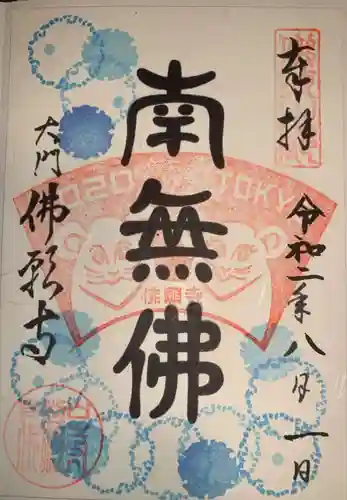 奉拝
令和二年八月一日
南無佛
2020 TOKY
佛願寺
大門 佛願寺